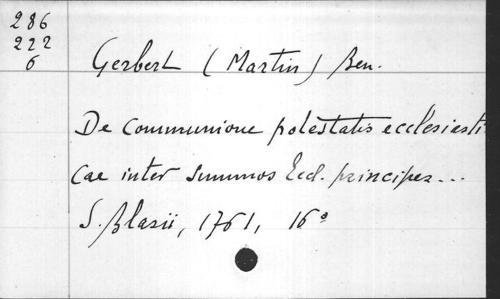 286
222
6
Gerbert (Martin) Ben.
De communione potestatis ecclesiasti
cae inter summos Eccl. principes...
S. Blasii, 1761, 16°